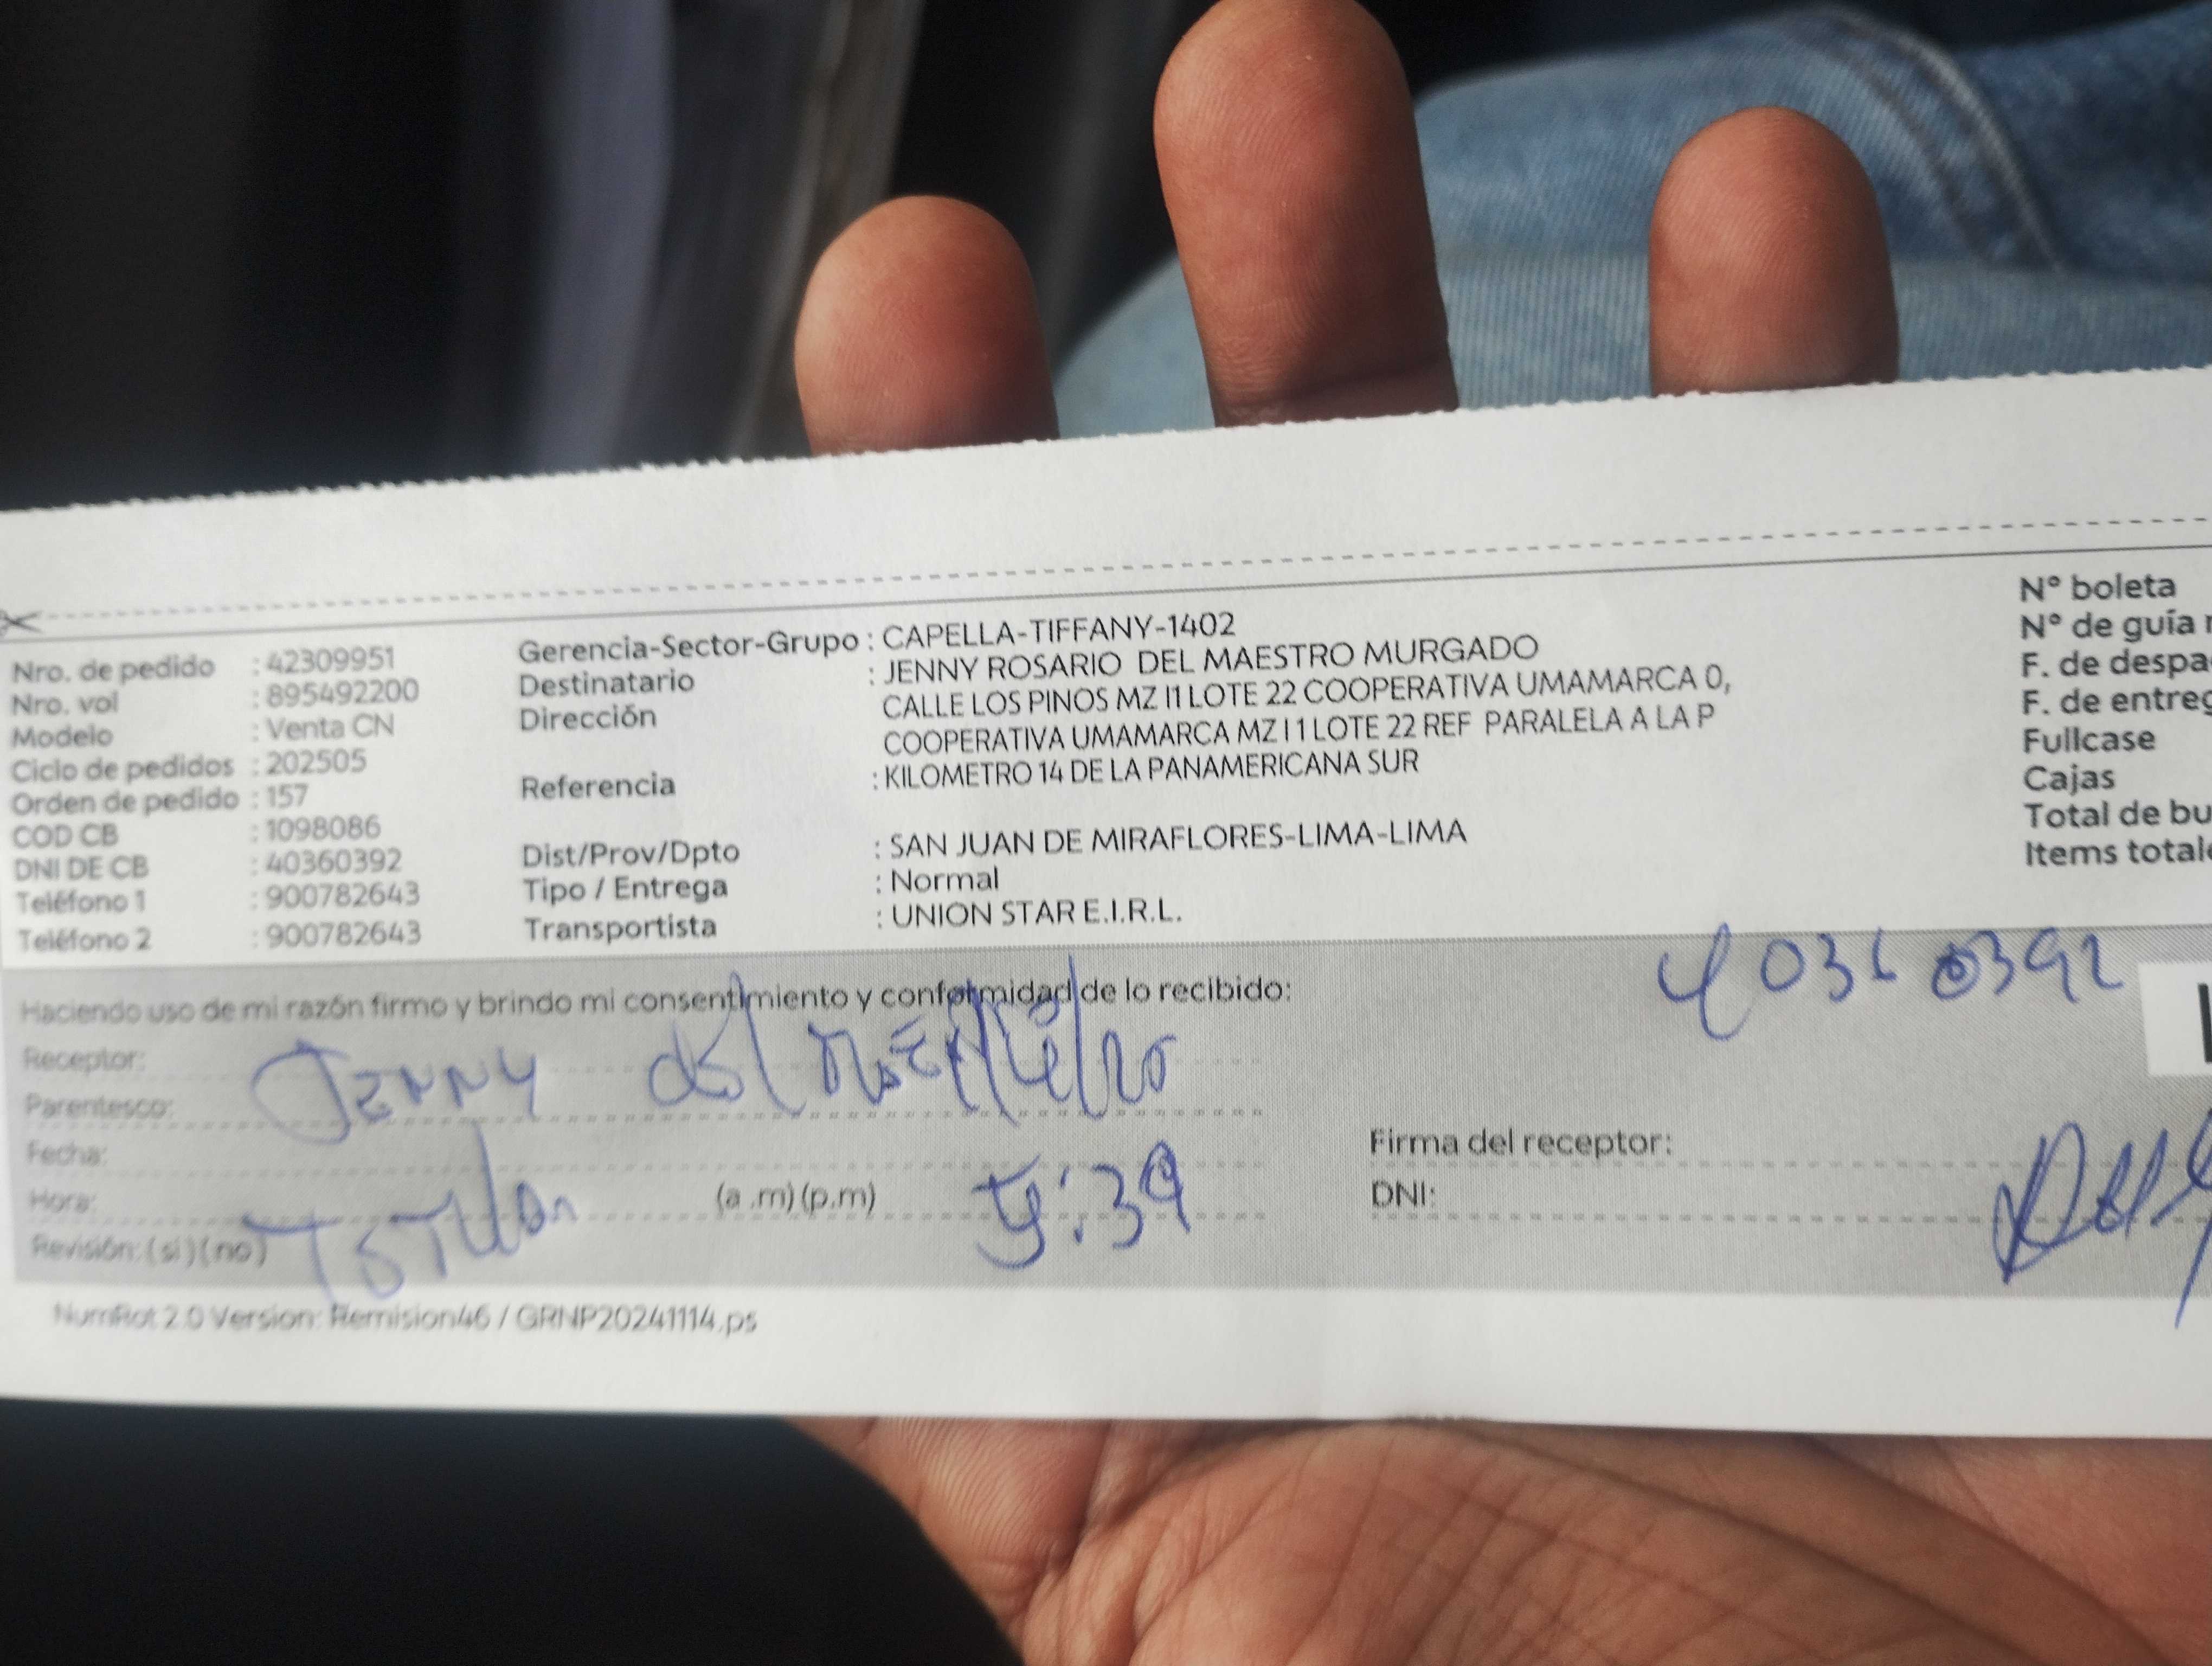 Nro. de pedido : 42309951
Nro. vol : 895492200
Modelo : Venta CN
Ciclo de pedidos : 202505
Orden de pedido : 157
COD CB : 1098086
DNI DE CB : 40360392
Teléfono 1 : 900782643
Teléfono 2 : 900782643
Gerencia-Sector-Grupo : CAPELLA-TIFFANY-1402
Destinatario : JENNY ROSARIO DEL MAESTRO MURGADO
Dirección CALLE LOS PINOS MZ I1 LOTE 22 COOPERATIVA UMAMARCA 0,
COOPERATIVA UMAMARCA MZ I 1 LOTE 22 REF PARALELA A LA P
Referencia : KILOMETRO 14 DE LA PANAMERICANA SUR
Dist/Prov/Dpto : SAN JUAN DE MIRAFLORES-LIMA-LIMA
Tipo / Entrega : Normal
Transportista : UNION STAR E.I.R.L.
Nº boleta
Nº de guía
F. de despa
F. de entreg
Fullcase
Cajas
Total de bu
Items total
Haciendo uso de mi razón firmo y brindo mi consentimiento y conformidad de lo recibido:
40360392
Receptor:
Jenny del
Parentesco:
Fecha:
Hora: (a .m) (p.m)
Titular
Revisión: (si) (no)
Firma del receptor:
DNI:
NumRot 2.0 Version: Remision46 / GRNP20241114.ps